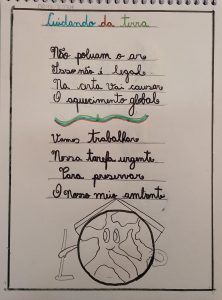 Cuidando da terra
Não poluam o ar
Isso não é legal
Na certa vai causar
O aquecimento global
Vamos trabalhar
Nossa tarefa urgente
Para preservar
O nosso meio ambiente